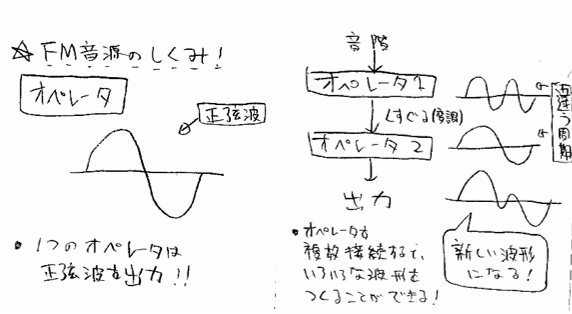 ☆FM音源のしくみ!
オペレータ
正弦波
• 1つのオペレータは
正弦波を出力!!
音階
オペレータ1
くすぐる(変調)
オペレータ2
出力
違う周期
新しい波形
になる!
• オペレータを
複数接続するで、
いろいろな波形を
つくることができる!